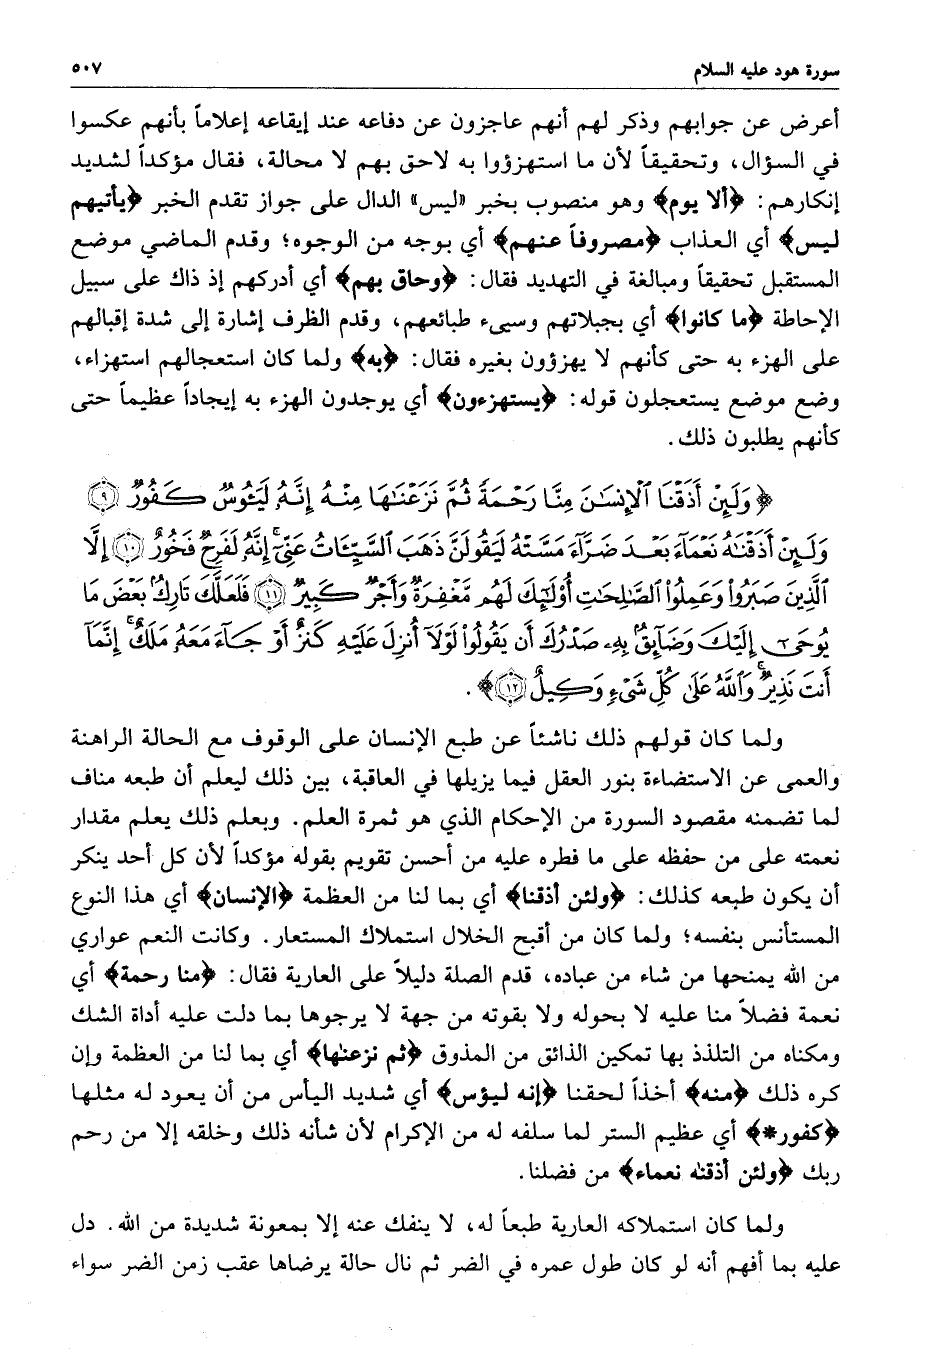 سورة هود عليه السلام ٥٠٧
أعرض عن جوابهم وذكر لهم أنهم عاجزون عن دفاعه عند إيقاعه إعلاماً بأنهم عكسوا
في السؤال، وتحقيقاً لأن ما استهزؤوا به لاحق بهم لا محالة، فقال مؤكداً لشديد
إنكارهم: ﴿ألا يوم﴾ وهو منصوب بخبر «ليس» الدال على جواز تقدم الخبر ﴿يأتيهم
ليس﴾ أي العذاب ﴿مصروفاً عنهم﴾ أي بوجه من الوجوه؛ وقدم الماضي موضع
المستقبل تحقيقاً ومبالغة في التهديد فقال: ﴿وحاق بهم﴾ أي أدركهم إذ ذاك على سبيل
الإحاطة ﴿ما كانوا﴾ أي بجبلاتهم وسيىء طبائعهم، وقدم الظرف إشارة إلى شدة إقبالهم
على الهزء به حتى كأنهم لا يهزؤون بغيره فقال: ﴿به﴾ ولما كان استعجالهم استهزاء،
وضع موضع يستعجلون قوله: ﴿يستهزءون﴾ أي يوجدون الهزء به إيجاداً عظيماً حتى
كأنهم يطلبون ذلك.
﴿وَلَئِنْ أَذَقْنَا ٱلْإِنسَٰنَ مِنَّا رَحْمَةً ثُمَّ نَزَعْنَٰهَا مِنْهُ إِنَّهُۥ لَيَـُٔوسٌ كَفُورٌ ۝٩
وَلَئِنْ أَذَقْنَٰهُ نَعْمَآءَ بَعْدَ ضَرَّآءَ مَسَّتْهُ لَيَقُولَنَّ ذَهَبَ ٱلسَّيِّـَٔاتُ عَنِّىٓ ۚ إِنَّهُۥ لَفَرِحٌ فَخُورٌ ۝١٠ إِلَّا
ٱلَّذِينَ صَبَرُوا۟ وَعَمِلُوا۟ ٱلصَّٰلِحَٰتِ أُو۟لَٰٓئِكَ لَهُم مَّغْفِرَةٌ وَأَجْرٌ كَبِيرٌ ۝١١ فَلَعَلَّكَ تَارِكٌۢ بَعْضَ مَا
يُوحَىٰٓ إِلَيْكَ وَضَآئِقٌۢ بِهِۦ صَدْرُكَ أَن يَقُولُوا۟ لَوْلَآ أُنزِلَ عَلَيْهِ كَنزٌ أَوْ جَآءَ مَعَهُۥ مَلَكٌ ۚ إِنَّمَآ
أَنتَ نَذِيرٌ ۚ وَٱللَّهُ عَلَىٰ كُلِّ شَىْءٍ وَكِيلٌ ۝١٢﴾.
ولما كان قولهم ذلك ناشئاً عن طبع الإنسان على الوقوف مع الحالة الراهنة
والعمى عن الاستضاءة بنور العقل فيما يزيلها في العاقبة، بين ذلك ليعلم أن طبعه مناف
لما تضمنه مقصود السورة من الإحكام الذي هو ثمرة العلم. وبعلم ذلك يعلم مقدار
نعمته على من حفظه على ما فطره عليه من أحسن تقويم بقوله مؤكداً لأن كل أحد ينكر
أن يكون طبعه كذلك: ﴿ولئن أذقنا﴾ أي بما لنا من العظمة ﴿الإنسان﴾ أي هذا النوع
المستأنس بنفسه؛ ولما كان من أقبح الخلال استملاك المستعار. وكانت النعم عواري
من الله يمنحها من شاء من عباده، قدم الصلة دليلاً على العارية فقال: ﴿منا رحمة﴾ أي
نعمة فضلاً منا عليه لا بحوله ولا بقوته من جهة لا يرجوها بما دلت عليه أداة الشك
ومكناه من التلذذ بها تمكين الذائق من المذوق ﴿ثم نزعنٰها﴾ أي بما لنا من العظمة وإن
كره ذلك ﴿منه﴾ أخذاً لحقنا ﴿إنه ليؤس﴾ أي شديد اليأس من أن يعود له مثلها
﴿كفور*﴾ أي عظيم الستر لما سلفه له من الإكرام لأن شأنه ذلك وخلقه إلا من رحم
ربك ﴿ولئن أذقنٰه نعماء﴾ من فضلنا.
ولما كان استملاكه العارية طبعاً له، لا ينفك عنه إلا بمعونة شديدة من الله. دل
عليه بما أفهم أنه لو كان طول عمره في الضر ثم نال حالة يرضاها عقب زمن الضر سواء